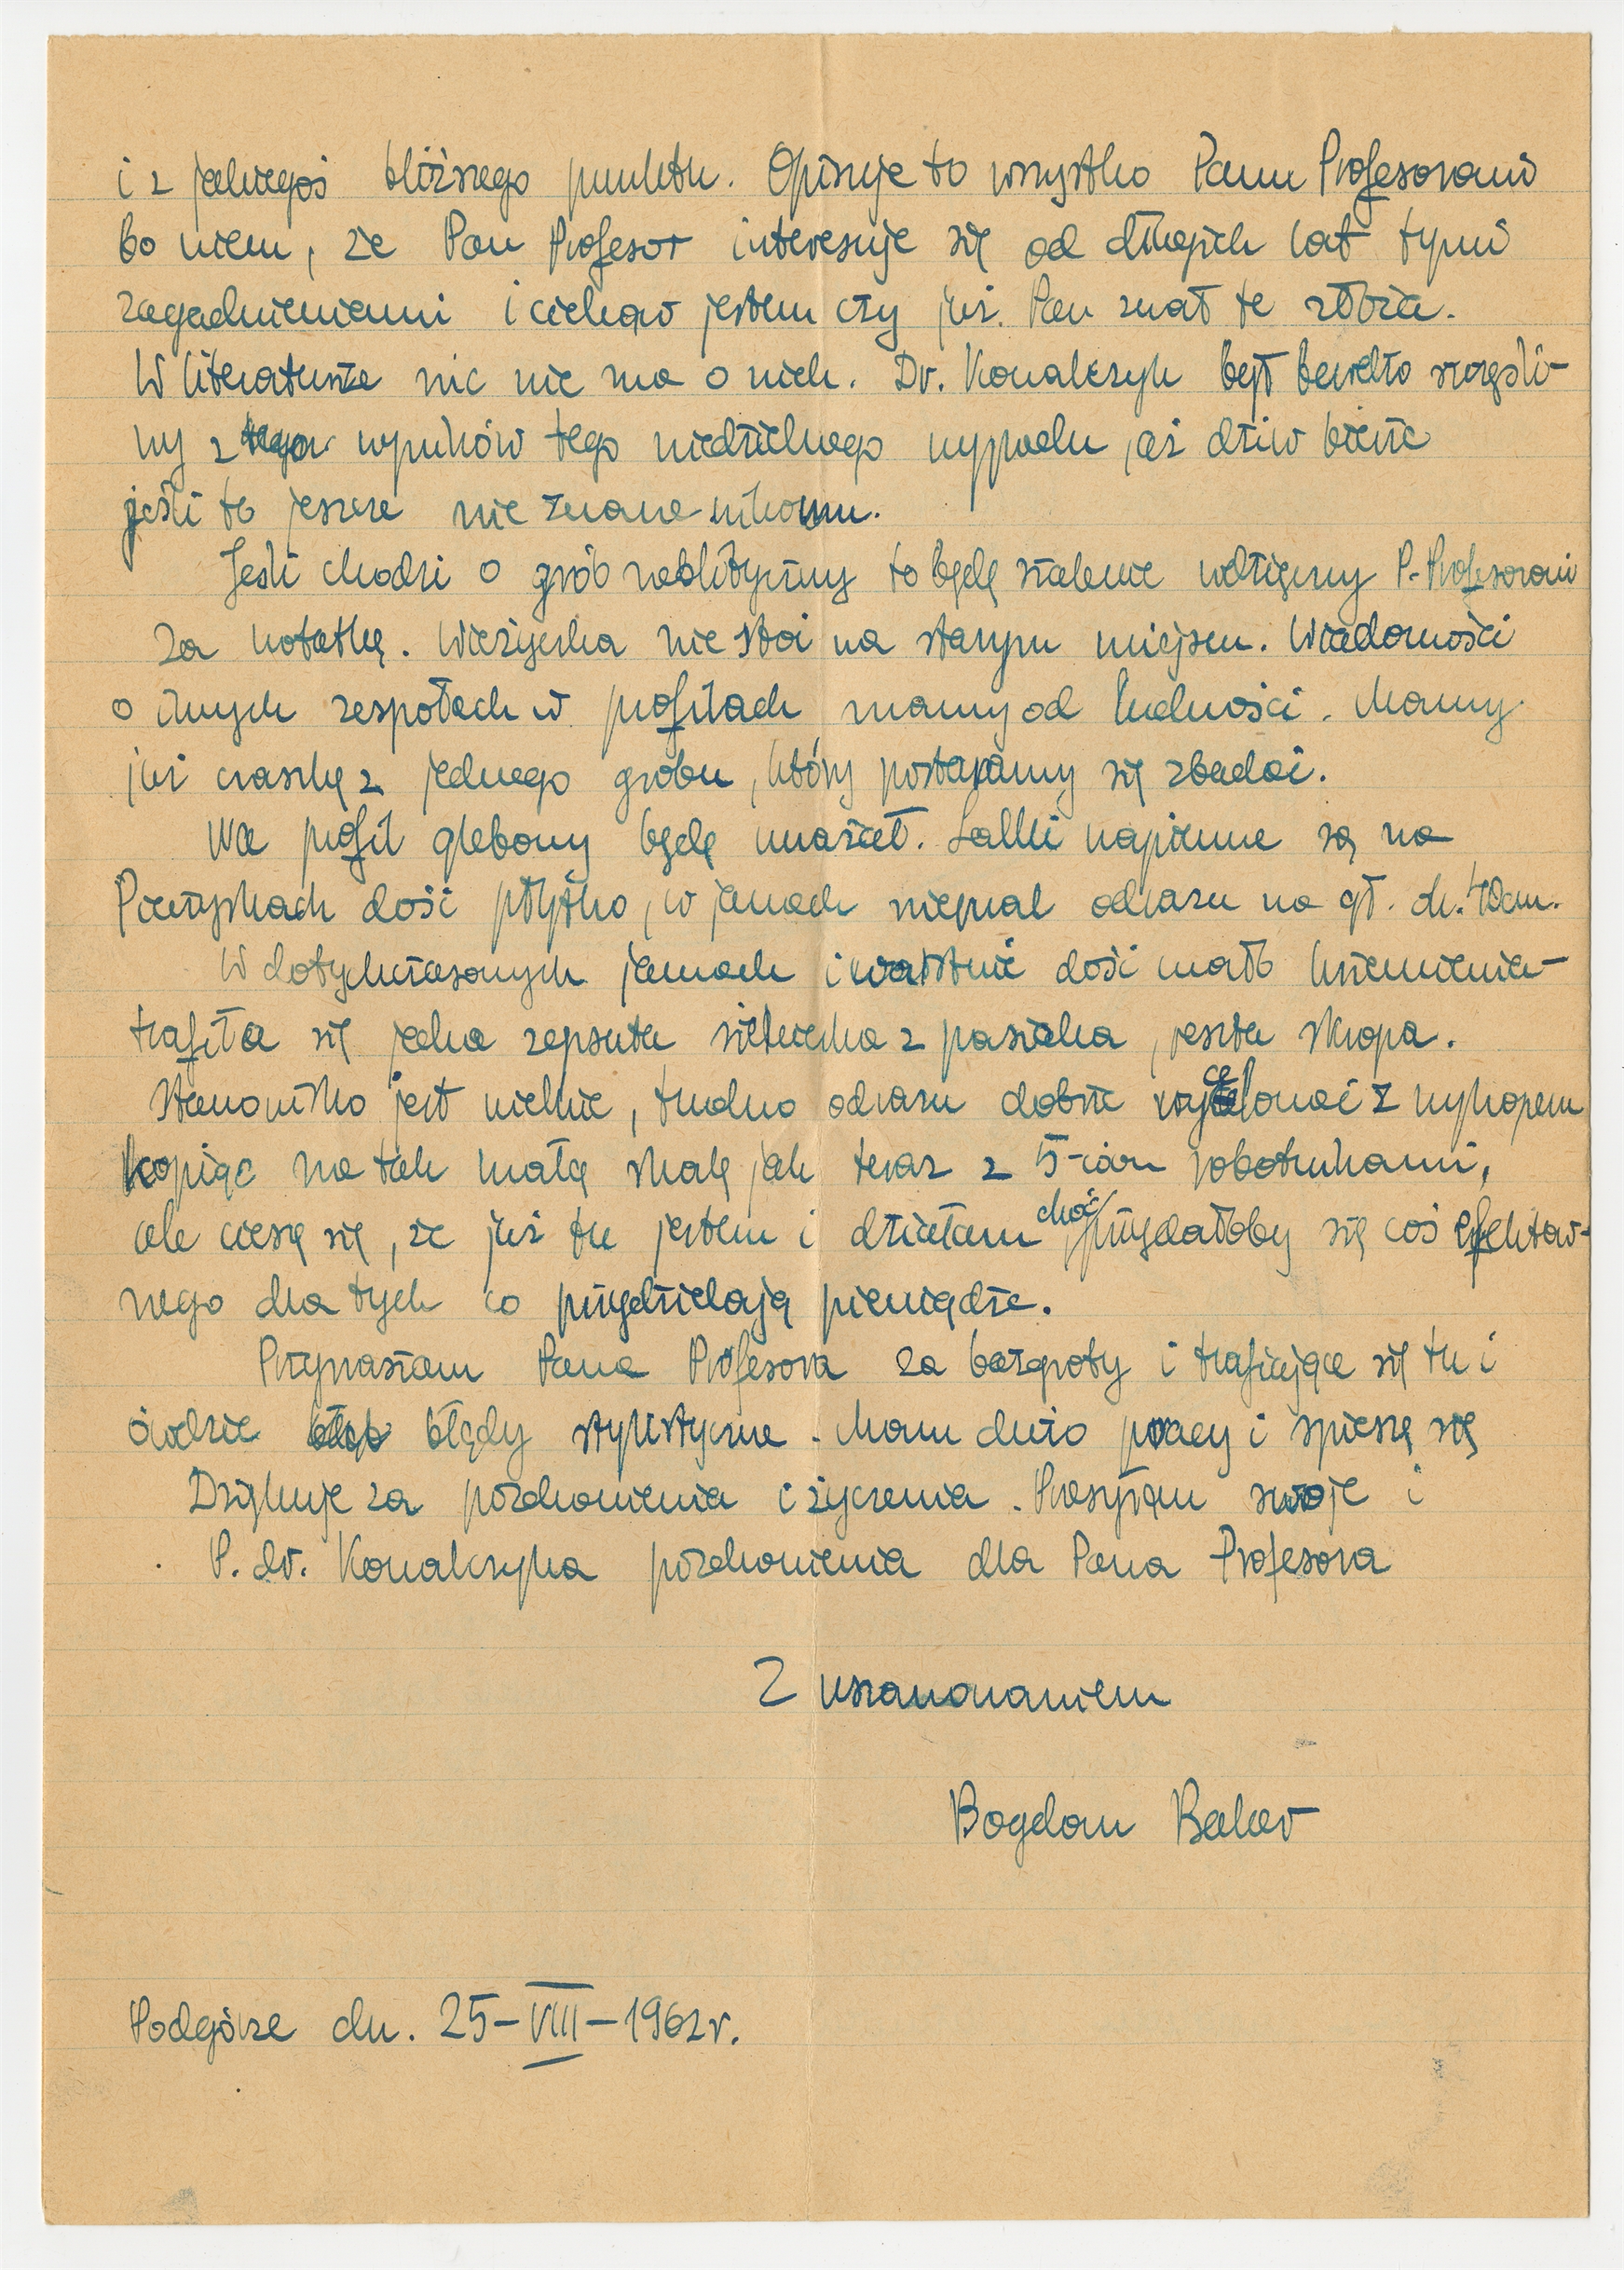 i z jakiegoś bliższego punktu. Opisuję to wszystko Panu Profesorowi
bo wiem, że Pan Profesor interesuje się od długich lat tymi
zagadnieniami i ciekaw jestem czy już Pan znał te złoża.
W literaturze nic nie ma o nich. Dr. Kowalczyk był bardzo szczęśli-
wy z wyników tego niedzielnego wypadu, aż dziw bierze
jeśli to jeszcze nie znane nikomu.
Jeśli chodzi o grób neolityczny to będę szalenie wdzięczny P. Profesorowi
za notatkę. Wieżyczka nie stoi na starym miejscu. Wiadomości
o innych zespołach w profilach mamy od ludności. Mamy
już czaszkę z jednego grobu, który postaramy się zbadać.
Na profil glebowy będę uważał. Lalki wapienne są na
Pieczyskach dość płytko, w jamach nieomal odrazu na gł. ok. 40cm.
W dotychczasowych jamach i warstwie dość mało krzemienia-
trafiła się jedna zepsuta siekierka z pasiaka, reszta skropa.
Stanowisko jest wielkie, trudno odrazu dobrze wycelować z wykopem
kopiąc na tak małą skalę jak teraz z 5-cioma robotnikami,
ale cieszę się, że już tu jestem i działam choć przydałoby się coś efektow-
nego dla tych co przydzielają pieniądze.
Przepraszam Pana Profesora za bazgroty i trafiające się tu i
ówdzie błędy stylistyczne. Mam dużo pracy i spieszę się
Dziękuję za pozdrowienia i życzenia. Przesyłam swoje i
P. dr. Kowalczyka pozdrowienia dla Pana Profesora
Z uszanowaniem
Bogdan Balcer
Podgórze dn. 25-VIII-1962r.